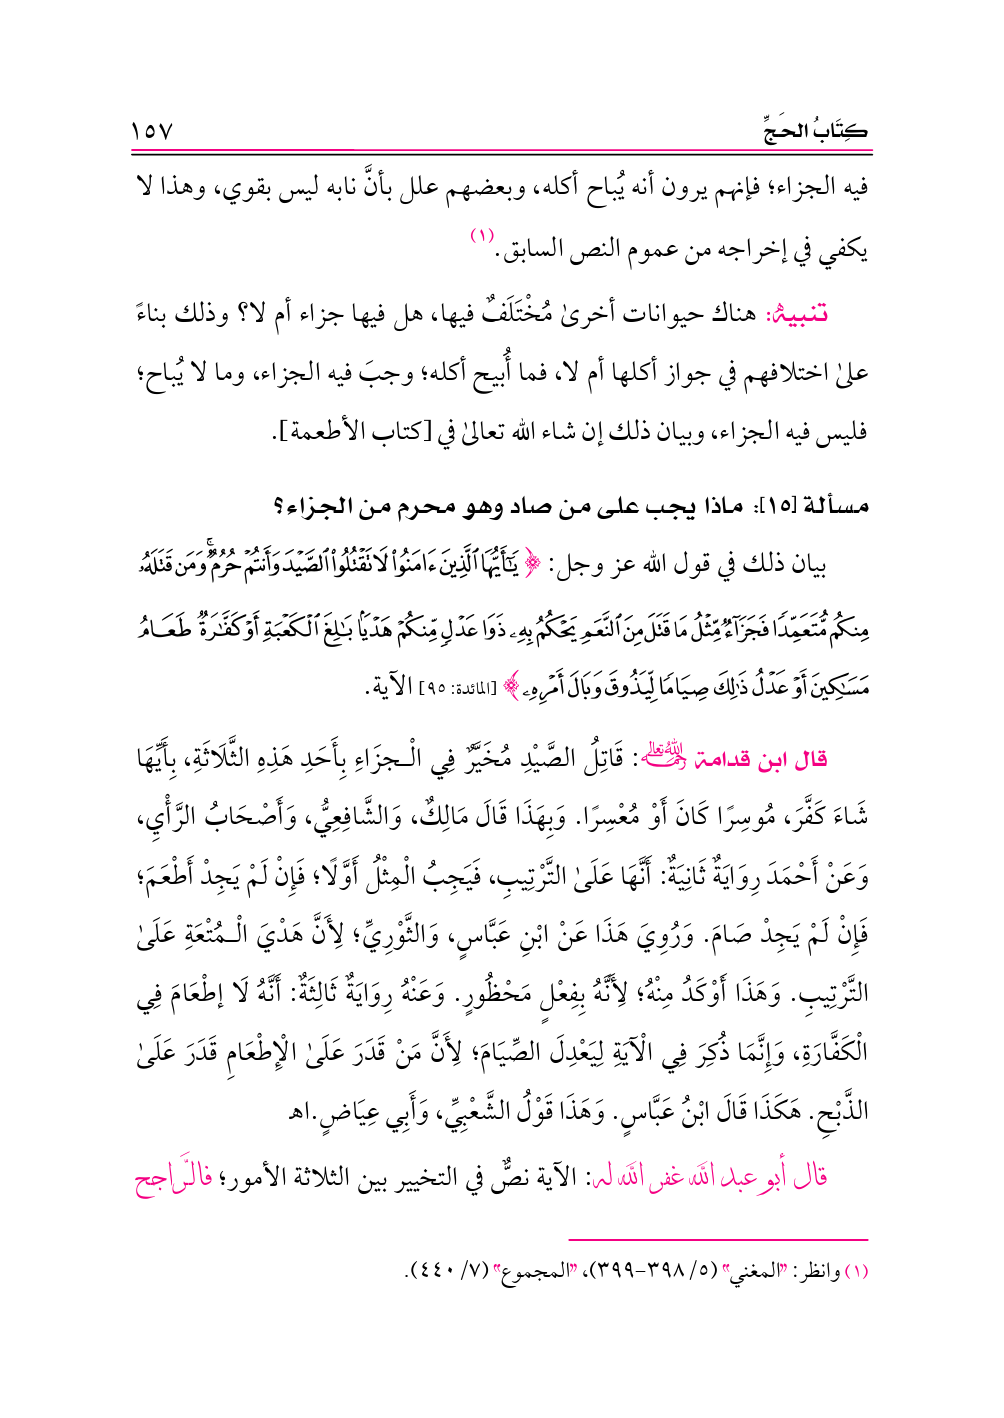 كِتَابُ الحَجِّ ١٥٧
فيه الجزاء؛ فإنهم يرون أنه يُباح أكله، وبعضهم علل بأنَّ نابه ليس بقوي، وهذا لا
يكفي في إخراجه من عموم النص السابق.(١)
تنبيهٌ: هناك حيوانات أخرىٰ مُخْتَلَفٌ فيها، هل فيها جزاء أم لا؟ وذلك بناءً
علىٰ اختلافهم في جواز أكلها أم لا، فما أُبيح أكله؛ وجبَ فيه الجزاء، وما لا يُباح؛
فليس فيه الجزاء، وبيان ذلك إن شاء الله تعالىٰ في [كتاب الأطعمة].
مسألة [١٥]: ماذا يجب على من صاد وهو محرم من الجزاء؟
بيان ذلك في قول الله عز وجل: ﴿يَٰٓأَيُّهَا ٱلَّذِينَ ءَامَنُوا۟ لَا تَقْتُلُوا۟ ٱلصَّيْدَ وَأَنتُمْ حُرُمٌ ۚ وَمَن قَتَلَهُۥ
مِنكُم مُّتَعَمِّدًا فَجَزَآءٌ مِّثْلُ مَا قَتَلَ مِنَ ٱلنَّعَمِ يَحْكُمُ بِهِۦ ذَوَا عَدْلٍ مِّنكُمْ هَدْيًۢا بَٰلِغَ ٱلْكَعْبَةِ أَوْ كَفَّٰرَةٌ طَعَامُ
مَسَٰكِينَ أَوْ عَدْلُ ذَٰلِكَ صِيَامًا لِّيَذُوقَ وَبَالَ أَمْرِهِۦ﴾ [المائدة: ٩٥] الآية.
قال ابن قدامة رحمه الله تعالى: قَاتِلُ الصَّيْدِ مُخَيَّرٌ فِي الْـجزَاءِ بِأَحَدِ هَذِهِ الثَّلَاثَةِ، بِأَيِّهَا
شَاءَ كَفَّرَ، مُوسِرًا كَانَ أَوْ مُعْسِرًا. وَبِهَذَا قَالَ مَالِكٌ، وَالشَّافِعِيُّ، وَأَصْحَابُ الرَّأْيِ،
وَعَنْ أَحْمَدَ رِوَايَةٌ ثَانِيَةٌ: أَنَّهَا عَلَىٰ التَّرْتِيبِ، فَيَجِبُ الْمِثْلُ أَوَّلًا؛ فَإِنْ لَمْ يَجِدْ أَطْعَمَ؛
فَإِنْ لَمْ يَجِدْ صَامَ. وَرُوِيَ هَذَا عَنْ ابْنِ عَبَّاسٍ، وَالثَّوْرِيِّ؛ لِأَنَّ هَدْيَ الْـمُتْعَةِ عَلَىٰ
التَّرْتِيبِ. وَهَذَا أَوْكَدُ مِنْهُ؛ لِأَنَّهُ بِفِعْلٍ مَحْظُورٍ. وَعَنْهُ رِوَايَةٌ ثَالِثَةٌ: أَنَّهُ لَا إطْعَامَ فِي
الْكَفَّارَةِ، وَإِنَّمَا ذُكِرَ فِي الْآيَةِ لِيَعْدِلَ الصِّيَامَ؛ لِأَنَّ مَنْ قَدَرَ عَلَىٰ الْإِطْعَامِ قَدَرَ عَلَىٰ
الذَّبْحِ. هَكَذَا قَالَ ابْنُ عَبَّاسٍ. وَهَذَا قَوْلُ الشَّعْبِيِّ، وَأَبِي عِيَاضٍ.اهـ
قال أبو عبد الله غفر الله له: الآية نصٌّ في التخيير بين الثلاثة الأمور؛ فالرَّاجح
(١) وانظر: "المغني" (٥/ ٣٩٨-٣٩٩)، "المجموع" (٧/ ٤٤٠).